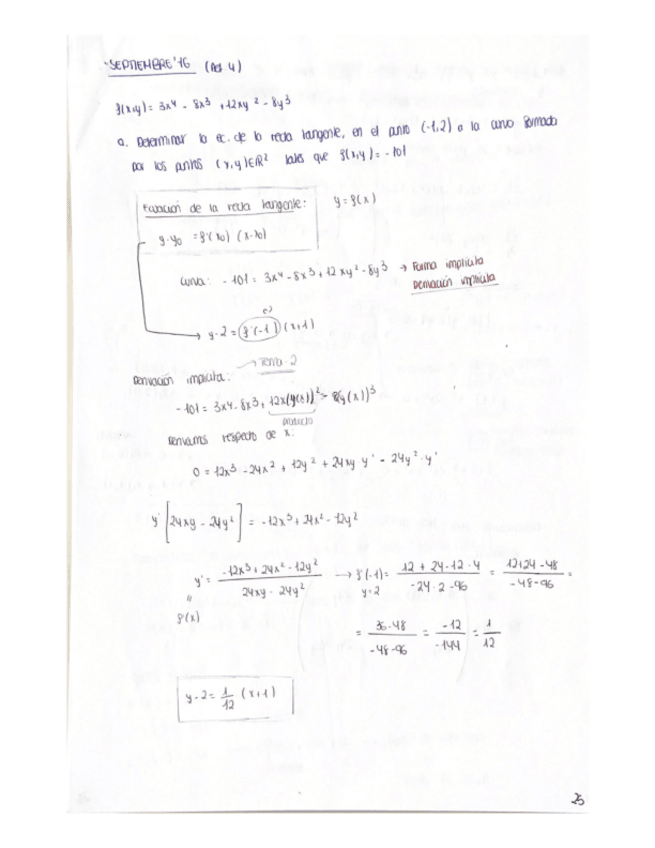 SEPTIEMBRE '16 (Act. 4)
f(x,y) = 3x⁴ - 8x³ + 12xy² - 8y³
a. Determinar la ec. de la recta tangente, en el punto (-1,2) a la curva formada
por los puntos (x,y) ∈ ℝ² tales que f(x,y) = -101
Ecuación de la recta tangente: y = f(x)
y-y₀ = f'(x₀) (x-x₀)
Curva: -101 = 3x⁴ - 8x³ + 12xy² - 8y³ → Forma implícita
Derivación implícita
y-2 = f'(-1) (x+1)
→ Tema 2
Derivación implícita:
-101 = 3x⁴ - 8x³ + 12x(y(x))² - 8(y(x))³
producto
Derivamos respecto de x:
0 = 12x³ - 24x² + 12y² + 24xy y' - 24y² · y'
y' [24xy - 24y²] = -12x³ + 24x² - 12y²
y' = (-12x³ + 24x² - 12y²) / (24xy - 24y²) → f'(-1) = (12 + 24 - 12 · 4) / (-24 · 2 - 96) = (12+24-48) / (-48-96) =
y=2
"
f'(x)
= (36-48) / (-48-96) = -12 / -144 = 1/12
y-2 = 1/12 (x+1)
25